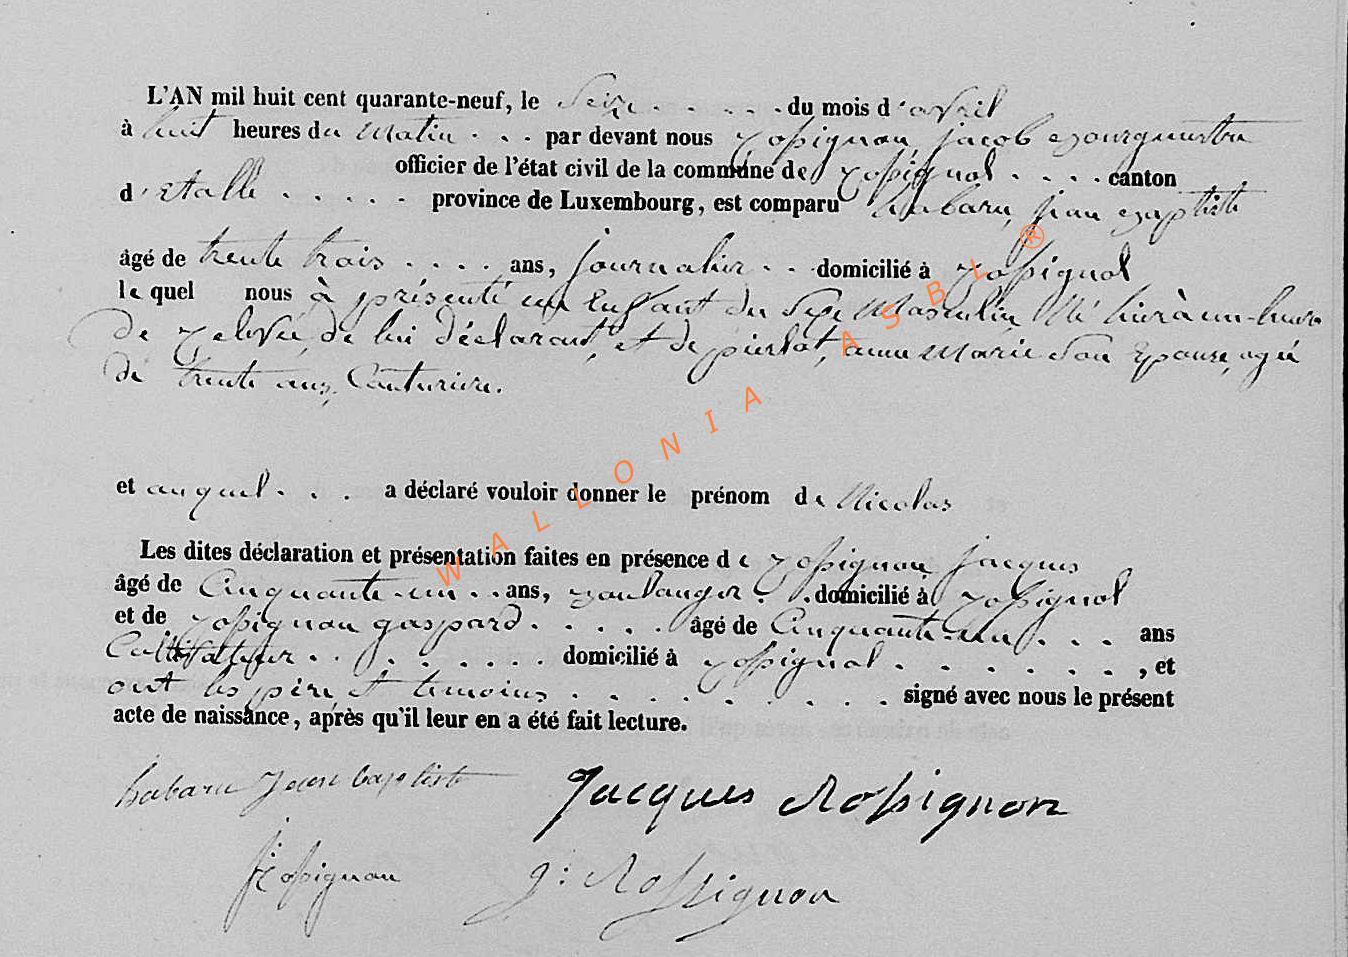 L'AN mil huit cent quarante-neuf, le Seize . . . . . du mois d'avril
à huit heures du Matin . . . par devant nous Rossignon, jacob Bourguestre
officier de l'état civil de la commune de Rossignol . . . . canton
d'Etalle . . . . . province de Luxembourg, est comparu habaru, jean Baptiste
âgé de trente trois . . . . ans, journalier . . domicilié à Rossignol
le quel nous à présenté un Enfant du Sexe Masculin Né hier à un-heure
De , de lui déclarant, et de pierlot, anne Marie Son Epouse, agée
de trente ans, Couturière.
et auquel . . . a déclaré vouloir donner le prénom de Nicolas
Les dites déclaration et présentation faites en présence de Rossignon jacques
âgé de Cinquante-un . . ans, Boulanger . . domicilié à Rossignol
et de Rossignon gaspard . . . . . âgé de Cinquante-un . . . ans
Cultivateur . . . . . . . domicilié à Rossignol . . . . . . . , et
ont les père et temoins . . . . . . . . signé avec nous le présent
acte de naissance, après qu'il leur en a été fait lecture.
habaru Jean baptiste Jacques Rossignon
J Rossignon g: Rossignon
WALLONIA ASBL ®